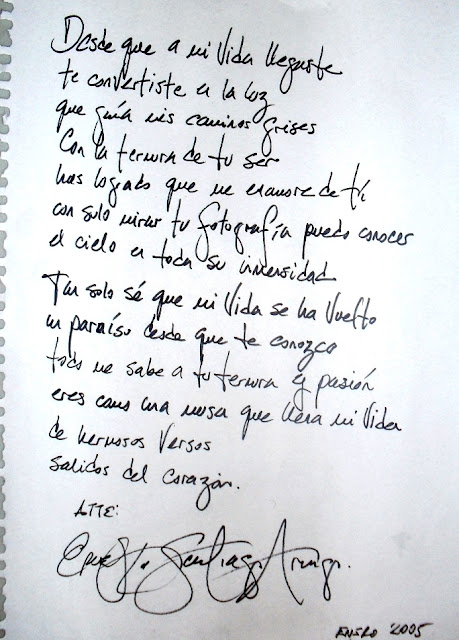 Desde que a mi vida llegaste
te convertiste en la luz
que guía mis caminos grises
Con la ternura de tu ser
has logrado que me enamore de tí,
con solo mirar tu fotografía puedo conocer
el cielo en toda su inmensidad
Tan solo sé que mi vida se ha vuelto
un paraíso desde que te conozco
todo me sabe a tu ternura y pasión
eres como una musa que llena mi vida
de hermosos versos
salidos del corazón.
ATTE:
Santiago
ENERO 2005